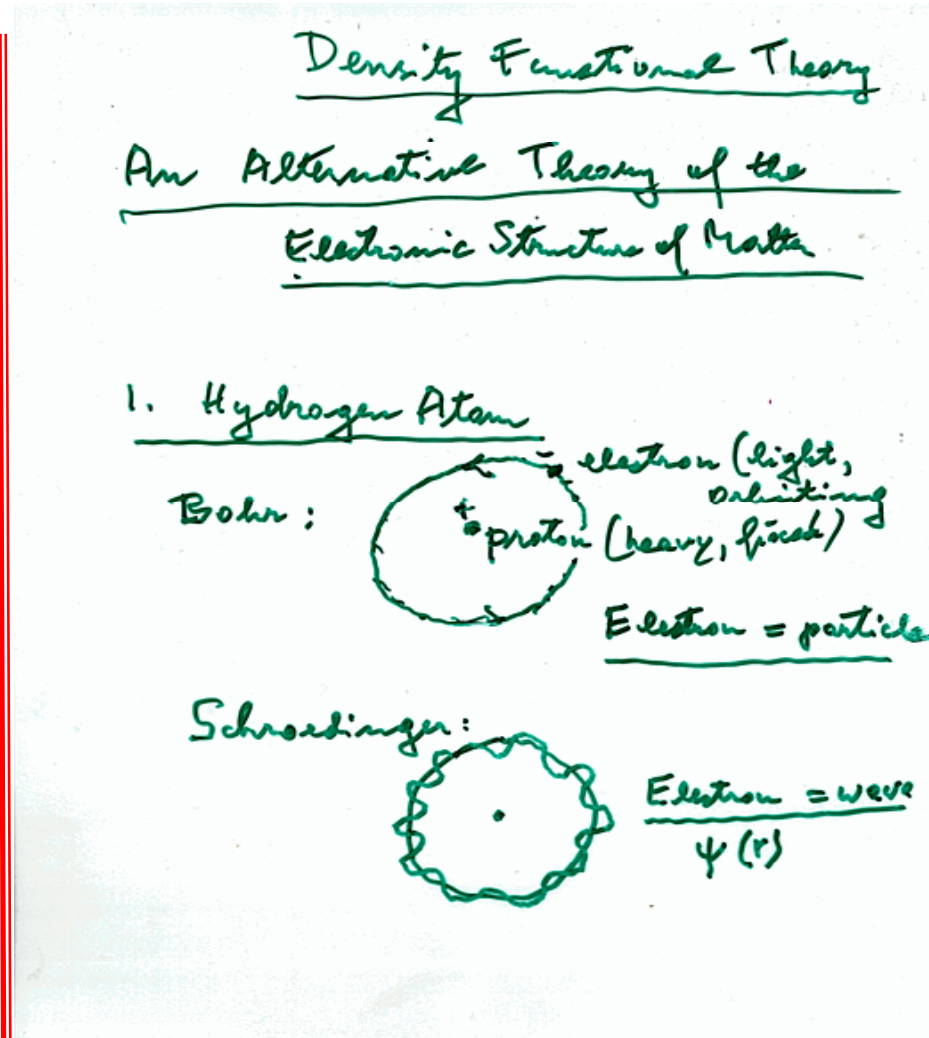 Density Functional Theory
An Alternative Theory of the
Electronic Structure of Matter
1. Hydrogen Atom
Bohr:
- electron (light,
orbiting
+
proton (heavy, fixed)
Electron = particle
Schroedinger:
Electron = wave
ψ(r)